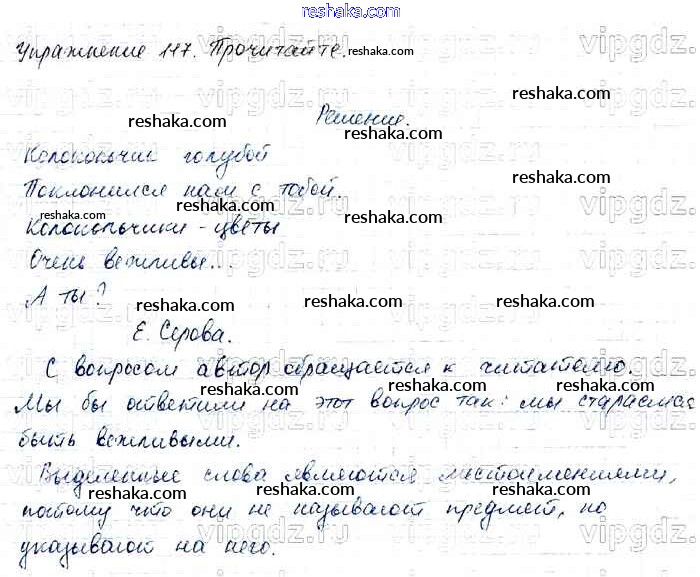 reshaka.com
Упражнение 117. Прочитайте. reshaka.com
Решение.
reshaka.com reshaka.com
Колокольчик голубой
Поклонился нам с тобой.
reshaka.com reshaka.com
reshaka.com reshaka.com
Колокольчики - цветы
Очень вежливы...
reshaka.com reshaka.com
А ты?
reshaka.com reshaka.com reshaka.com
Е. Серова.
С вопросом автор обращается к читателю.
reshaka.com reshaka.com reshaka.com
Мы бы ответили на этот вопрос так: мы стараемся
быть вежливыми.
reshaka.com reshaka.com
Выделенные слова являются местоимениями,
reshaka.com reshaka.com reshaka.com
потому что они не называют предмет, но
указывают на него.
reshaka.com reshaka.com